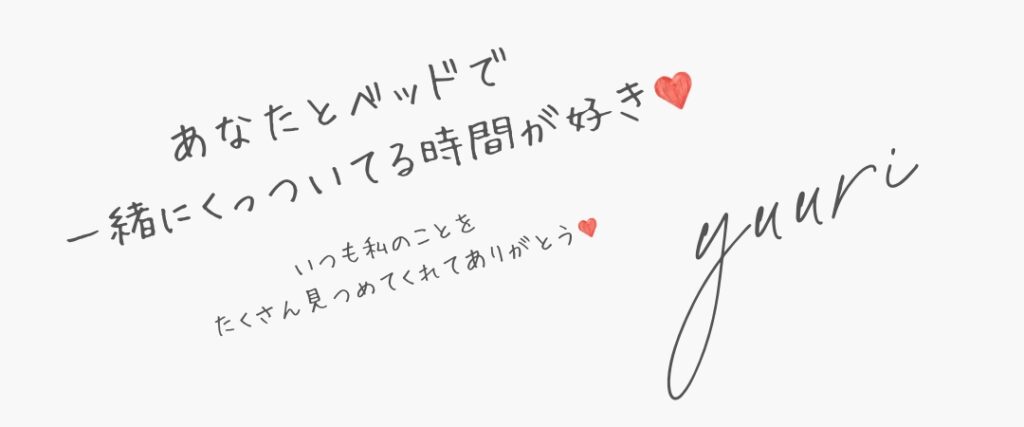 あなたとベッドで
一緒にくっついてる時間が好き♥
いつも私のことを
たくさん見つめてくれてありがとう♥
yuuri